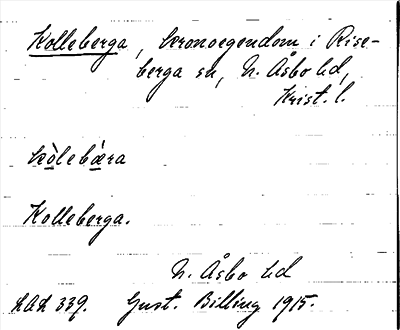 Kolleberga, kronoegendom i Rise-
berga sn, N. Åsbo hd,
Krist. l.
kòlebæra
Kolleberga.
N. Åsbo hd
LAL 339. Gust. Billing 1915.